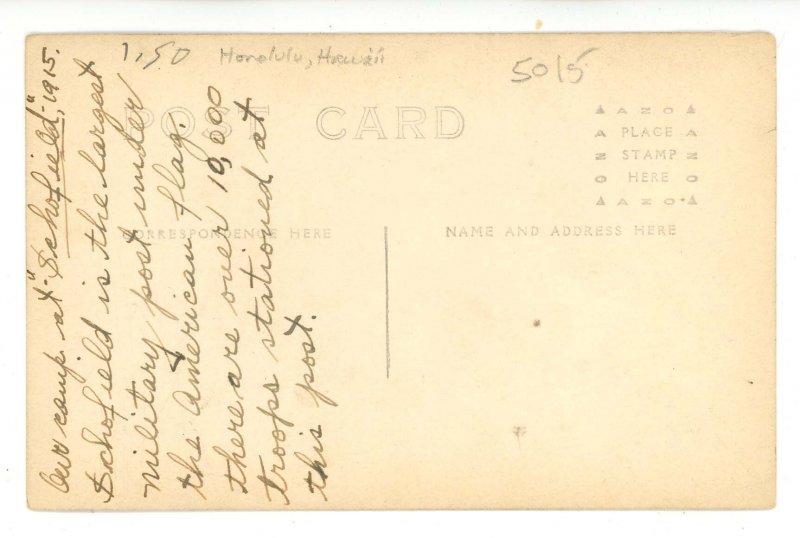 1,50
Honolulu, Hawaii
5015
POST CARD
AZO
A PLACE A
Z STAMP Z
O HERE O
AZO
CORRESPONDENCE HERE
NAME AND ADDRESS HERE
Our camp at "Schofield", 1915.
Schofield is the largest
military post under
the American flag.
there are over 10,000
troops stationed at
this post.